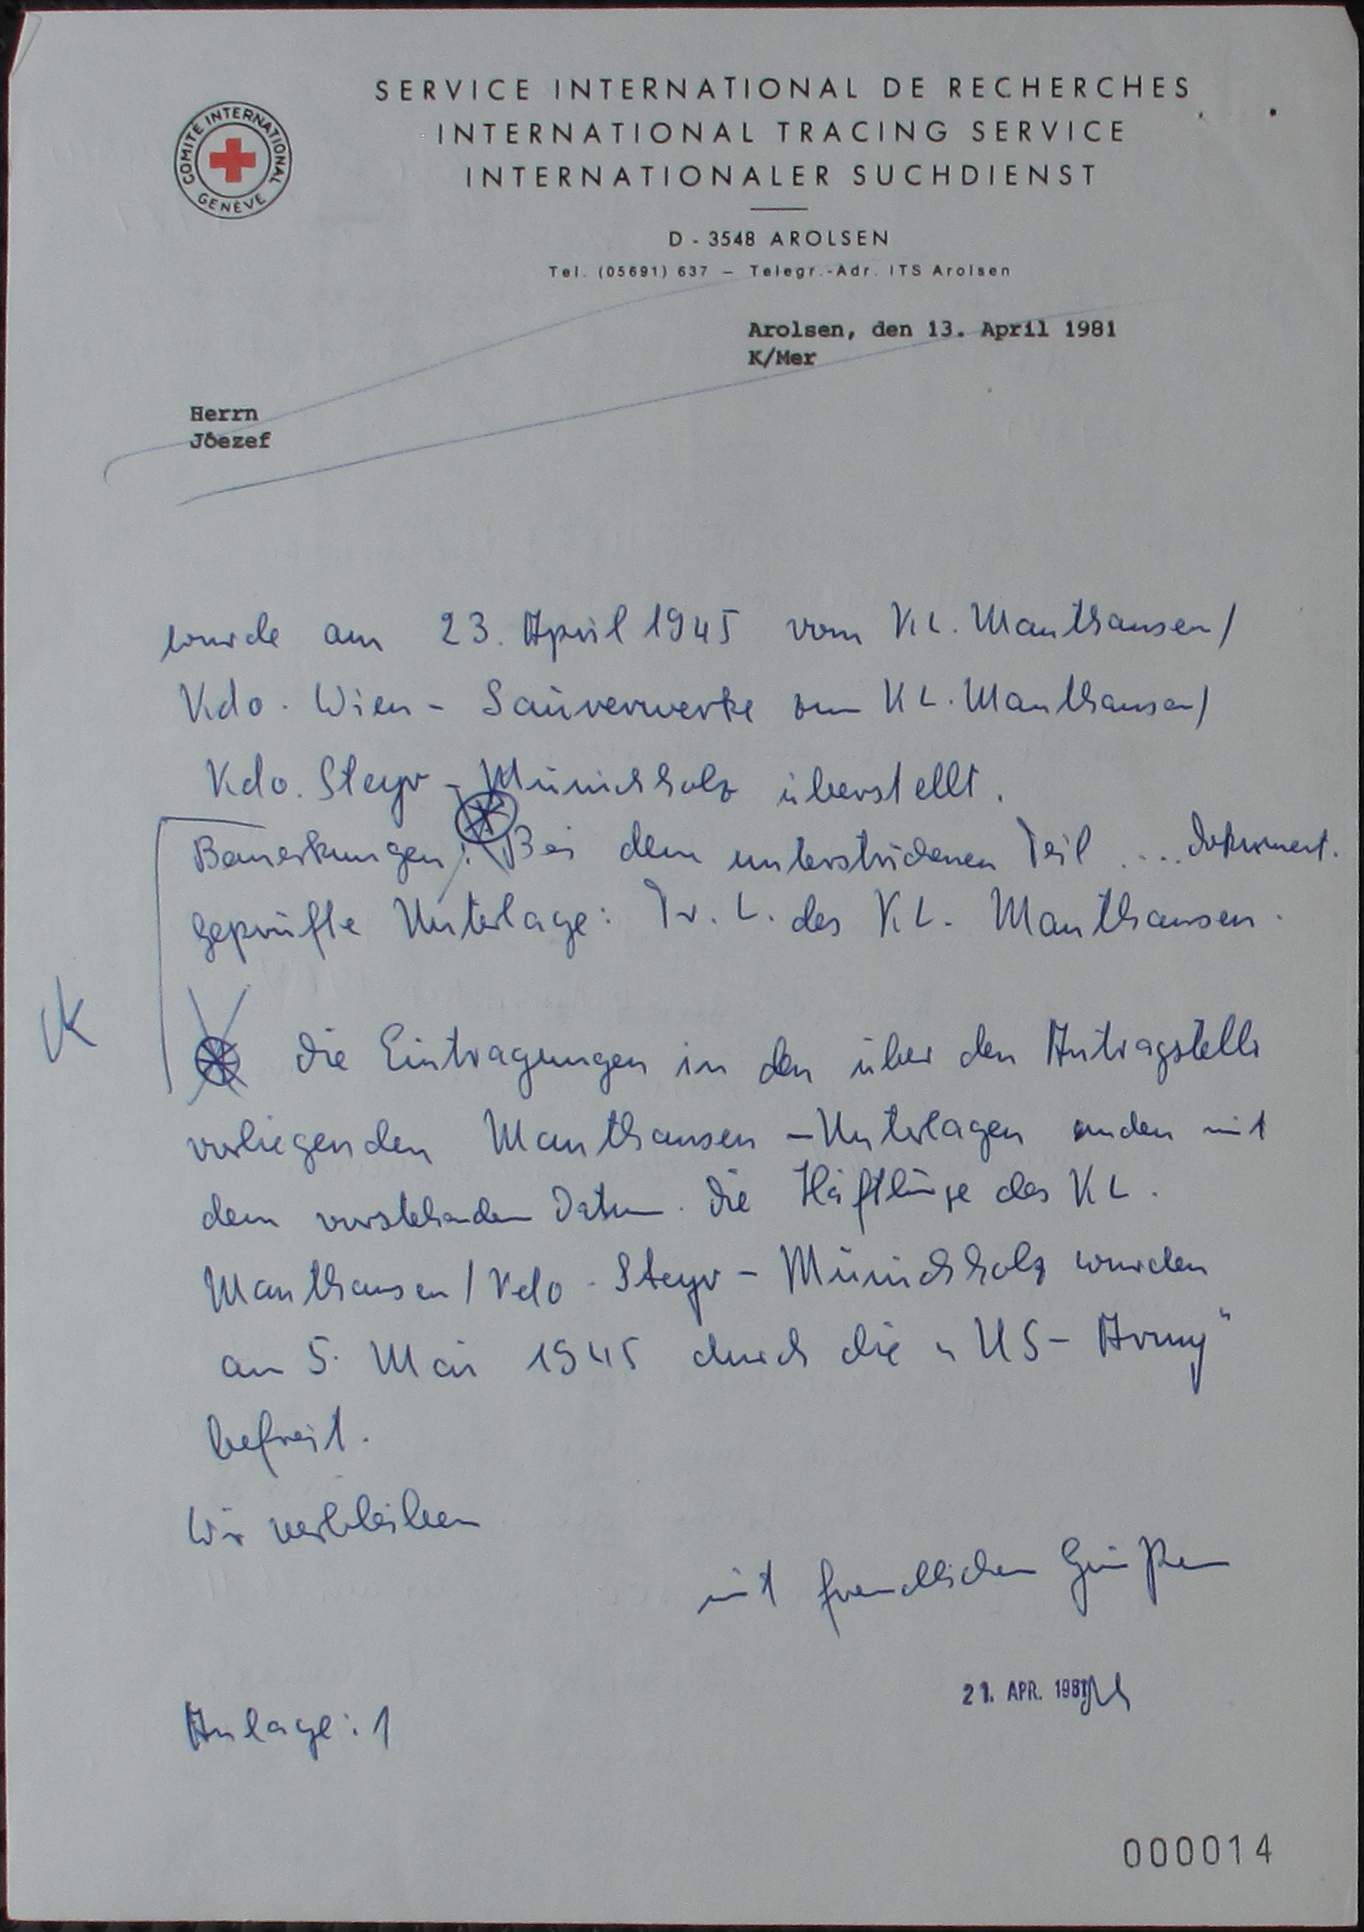 COMITÉ INTERNATIONAL
GENÈVE
SERVICE INTERNATIONAL DE RECHERCHES
INTERNATIONAL TRACING SERVICE
INTERNATIONALER SUCHDIENST
D - 3548 AROLSEN
Tel. (05691) 637 – Telegr.-Adr. ITS Arolsen
Arolsen, den 13. April 1981
K/Mer
Herrn
Jôezef
wurde am 23. April 1945 vom KL. Mauthausen/
Kdo. Wien - Saurerwerke zum KL. Mauthausen/
Kdo. Steyr - Münichholz überstellt.
Bemerkungen: Bei dem unterstrichenen Teil .... Dokument.
Geprüfte Unterlage: Tr. L. des KL. Mauthausen.
Die Eintragungen in den über den Antragsteller
vorliegenden Mauthausen - Unterlagen enden mit
dem vorstehenden Datum. Die Häftlinge des KL.
Mauthausen/Kdo. Steyr - Münichholz wurden
am 5. Mai 1945 durch die „US - Army"
befreit.
Wir verbleiben
mit freundlichen Grüßen
21. APR. 1981
Anlage: 1
000014